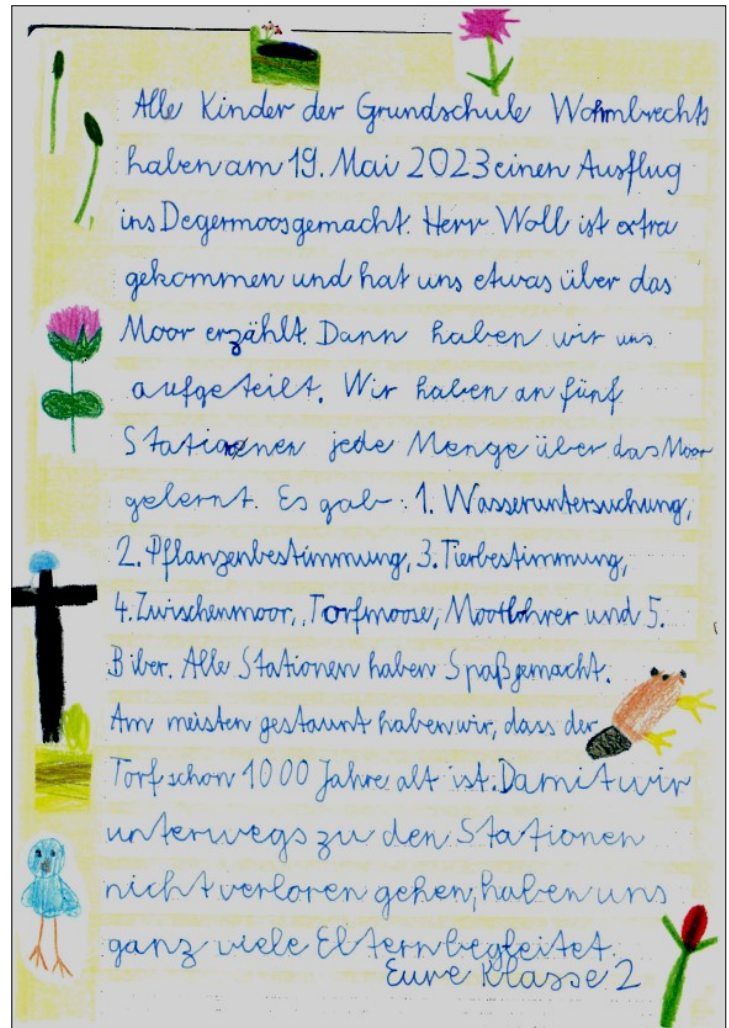 Alle Kinder der Grundschule Wohmbrechts
haben am 19. Mai 2023 einen Ausflug
ins Degermoos gemacht. Herr Woll ist extra
gekommen und hat uns etwas über das
Moor erzählt. Dann haben wir uns
aufgeteilt. Wir haben an fünf
Stationen jede Menge über das Moor
gelernt. Es gab: 1. Wasseruntersuchung,
2. Pflanzenbestimmung, 3. Tierbestimmung,
4. Zwischenmoor, Torfmoose, Moorbohrer und 5.
Biber. Alle Stationen haben Spaß gemacht.
Am meisten gestaunt haben wir, dass der
Torf schon 1000 Jahre alt ist. Damit wir
unterwegs zu den Stationen
nicht verloren gehen, haben uns
ganz viele Eltern begleitet.
Eure Klasse 2